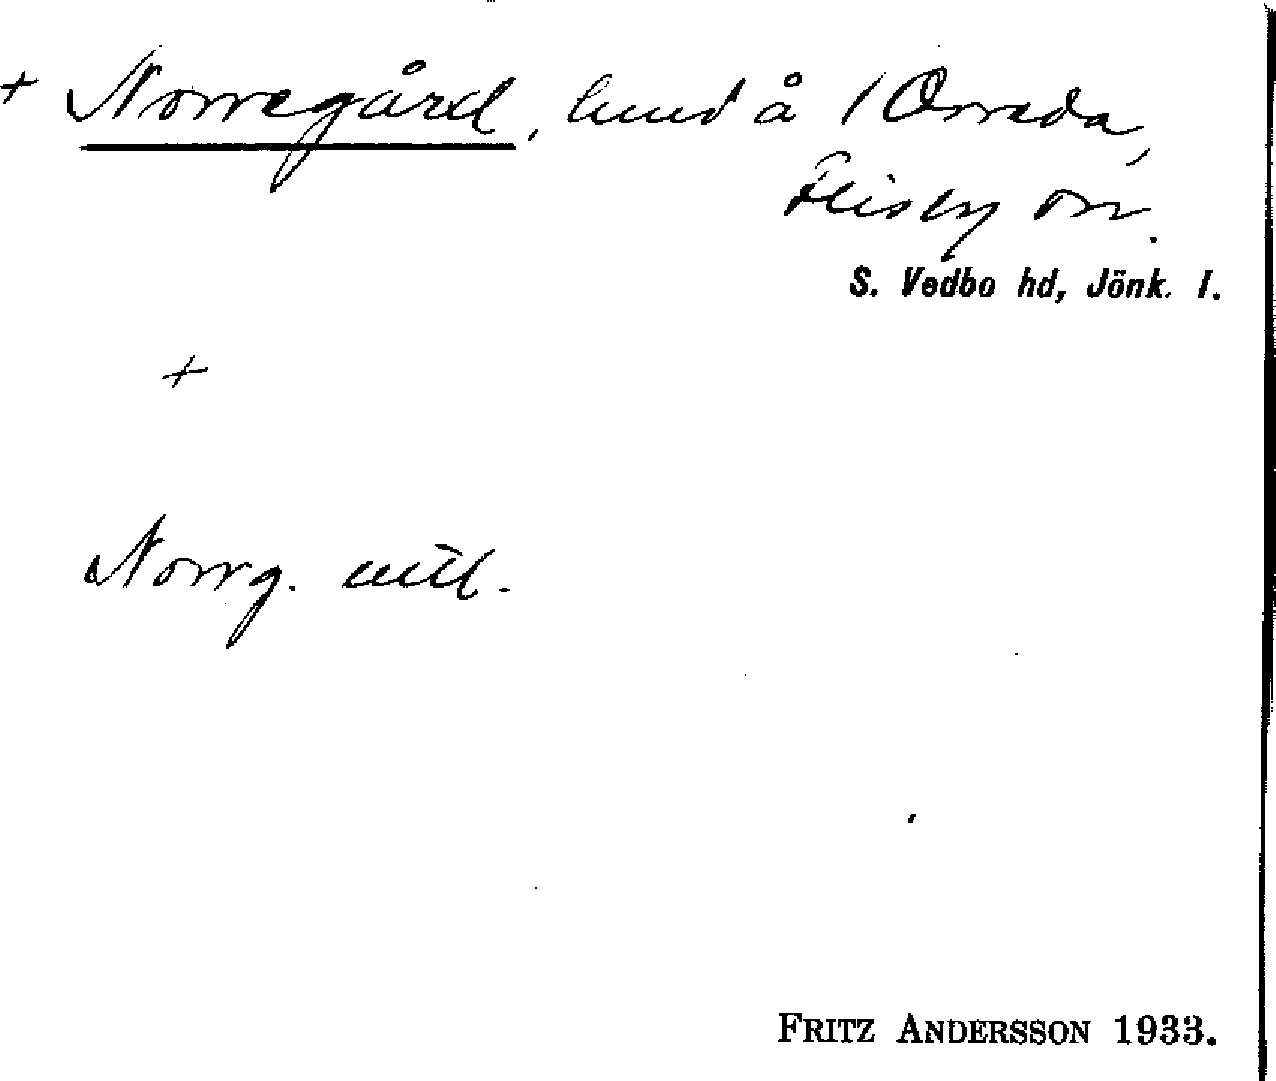 + Norregård, hmd å /Orreda,
Flisby sn.
S. Vedbo hd, Jönk. l.
+
Norrg. utl.
FRITZ ANDERSSON 1933.